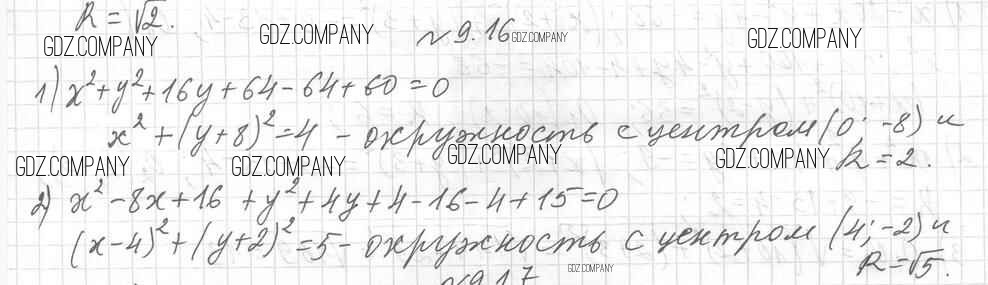 R = √2.
GDZ.COMPANY GDZ.COMPANY № 9.16 GDZ.COMPANY GDZ.COMPANY
1) x² + y² + 16y + 64 - 64 + 60 = 0
x² + (y + 8)² = 4 - окружность с центром (0; -8) и
GDZ.COMPANY GDZ.COMPANY GDZ.COMPANY GDZ.COMPANY R = 2.
2) x² - 8x + 16 + y² + 4y + 4 - 16 - 4 + 15 = 0
(x - 4)² + (y + 2)² = 5 - окружность с центром (4; -2) и
GDZ.COMPANY R = √5.
№ 9.17